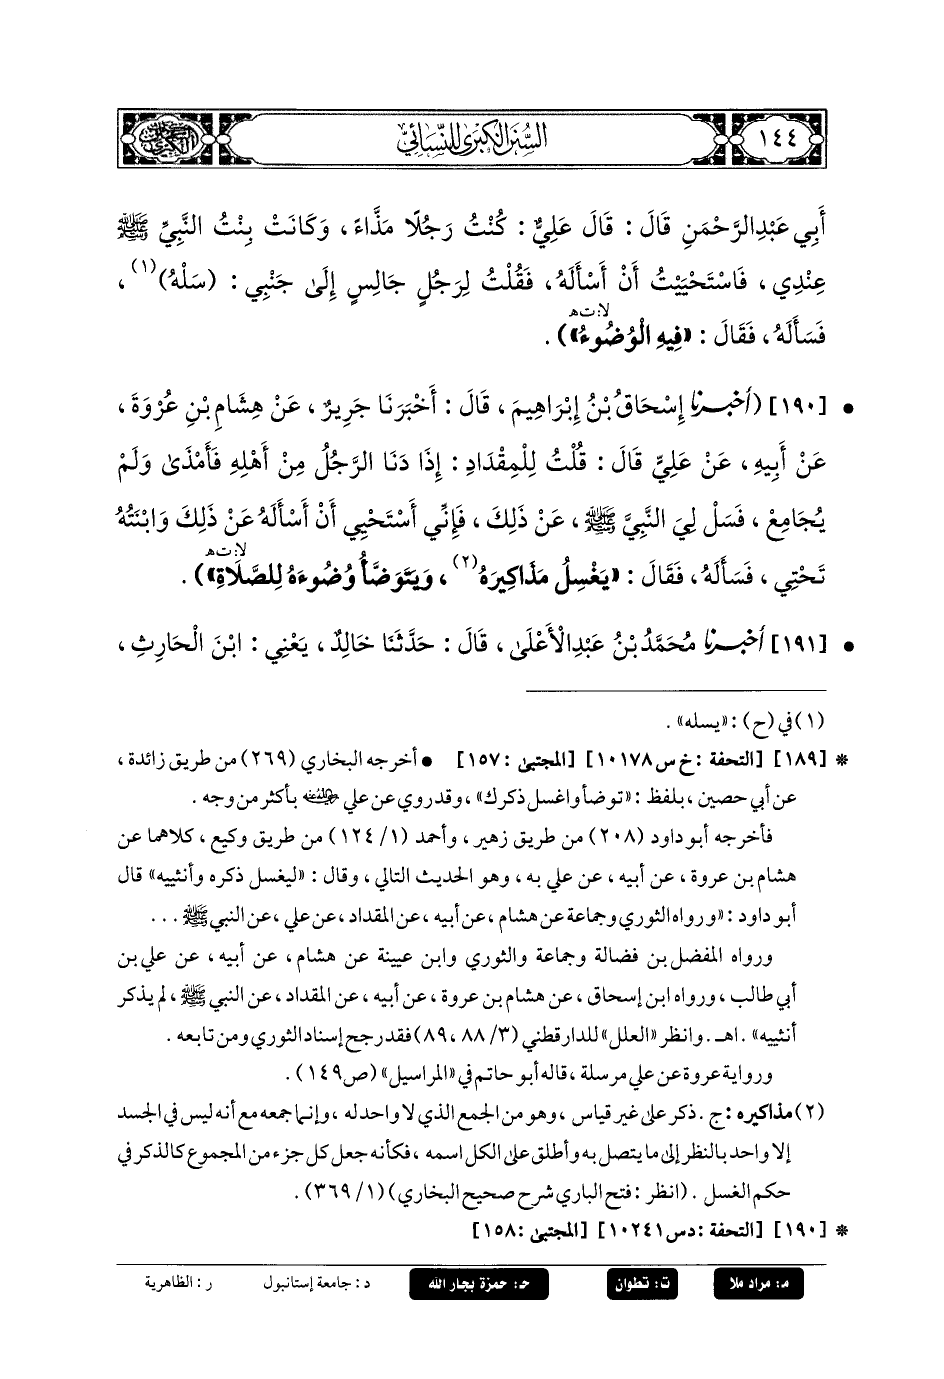 ١٤٤
السنن الكبرى للنسائي
أَبِي عَبْدِالرَّحْمَنِ قَالَ : قَالَ عَلِيٌّ : كُنْتُ رَجُلًا مَذَّاءً ، وَكَانَتْ بِنْتُ النَّبِيِّ ﷺ
عِنْدِي ، فَاسْتَحْيَيْتُ أَنْ أَسْأَلَهُ ، فَقُلْتُ لِرَجُلٍ جَالِسٍ إِلَىٰ جَنْبِي : (سَلْهُ)(١) ،
فَسَأَلَهُ ، فَقَالَ : «فِيهِ الْوُضُوءُ») . لا: ت هـ
• [١٩٠] (أَخْبَرَنَا إِسْحَاقُ بْنُ إِبْرَاهِيمَ ، قَالَ : أَخْبَرَنَا جَرِيرٌ ، عَنْ هِشَامِ بْنِ عُرْوَةَ ،
عَنْ أَبِيهِ ، عَنْ عَلِيٍّ قَالَ : قُلْتُ لِلْمِقْدَادِ : إِذَا دَنَا الرَّجُلُ مِنْ أَهْلِهِ فَأَمْذَىٰ وَلَمْ
يُجَامِعْ ، فَسَلْ لِيَ النَّبِيَّ ﷺ ، عَنْ ذَلِكَ ، فَإِنِّي أَسْتَحْيِي أَنْ أَسْأَلَهُ عَنْ ذَلِكَ وَابْنَتُهُ
تَحْتِي ، فَسَأَلَهُ ، فَقَالَ : «يَغْسِلُ مَذَاكِيرَهُ(٢) ، وَيَتَوَضَّأُ وُضُوءَهُ لِلصَّلَاةِ») . لا: ت هـ
• [١٩١] أَخْبَرَنَا مُحَمَّدُ بْنُ عَبْدِالْأَعْلَىٰ ، قَالَ : حَدَّثَنَا خَالِدٌ ، يَعْنِي : ابْنَ الْحَارِثِ ،
(١) في (ح) : «يسله» .
* [١٨٩] [التحفة : خ س ١٠١٧٨] [المجتبى : ١٥٧] • أخرجه البخاري (٢٦٩) من طريق زائدة ،
عن أبي حصين ، بلفظ : «توضأ واغسل ذكرك» ، وقد روي عن علي ؓ بأكثر من وجه .
فأخرجه أبو داود (٢٠٨) من طريق زهير ، وأحمد (١/ ١٢٤) من طريق وكيع ، كلاهما عن
هشام بن عروة ، عن أبيه ، عن علي به ، وهو الحديث التالي ، وقال : «ليغسل ذكره وأنثييه» قال
أبو داود : «ورواه الثوري وجماعة عن هشام ، عن أبيه ، عن المقداد ، عن علي ، عن النبي ﷺ ...
ورواه المفضل بن فضالة وجماعة والثوري وابن عيينة عن هشام ، عن أبيه ، عن علي بن
أبي طالب ، ورواه ابن إسحاق ، عن هشام بن عروة ، عن أبيه ، عن المقداد ، عن النبي ﷺ ، لم يذكر
أنثييه» . اهـ . وانظر «العلل» للدارقطني (٣/ ٨٨ ، ٨٩) فقد رجح إسناد الثوري ومن تابعه .
ورواية عروة عن علي مرسلة ، قاله أبو حاتم في «المراسيل» (ص١٤٩) .
(٢) مذاكيره : ج . ذكر على غير قياس ، وهو من الجمع الذي لا واحد له ، وإنما جمعه مع أنه ليس في الجسد
إلا واحد بالنظر إلى ما يتصل به وأطلق على الكل اسمه ، فكأنه جعل كل جزء من المجموع كالذكر في
حكم الغسل . (انظر : فتح الباري شرح صحيح البخاري) (١/ ٣٦٩) .
* [١٩٠] [التحفة : د س ١٠٢٤١] [المجتبى : ١٥٨]
م: مراد ملا ت: تطوان حـ: حمزة بجار الله د: جامعة إستانبول ر: الظاهرية